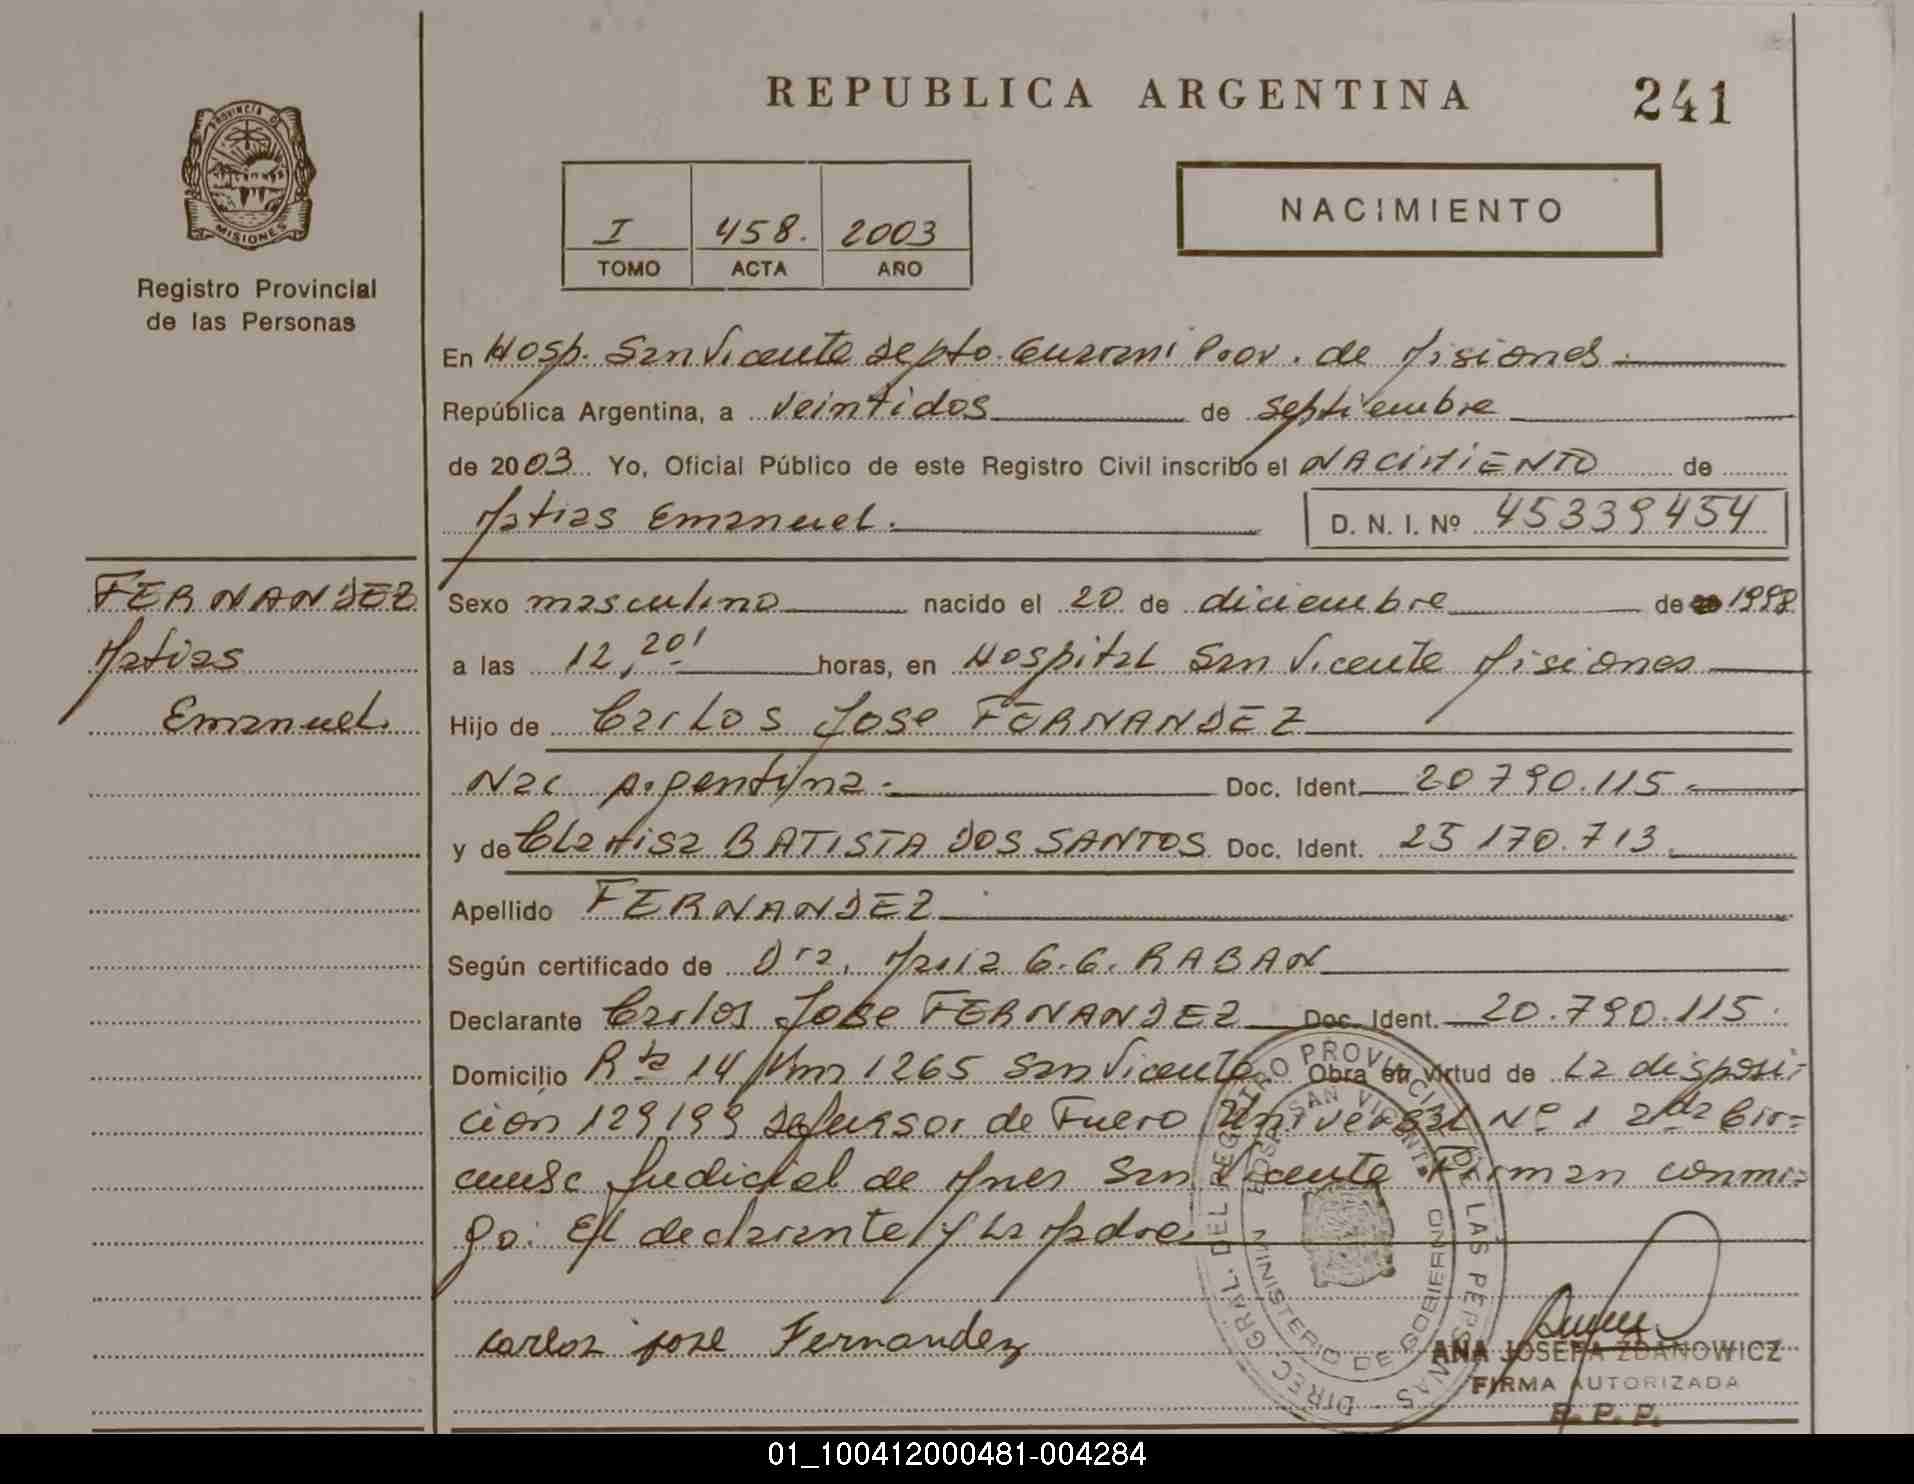 REPUBLICA ARGENTINA 241
PROVINCIA D
MISIONES
Registro Provincial
de las Personas
I 458. 2003
TOMO ACTA AÑO
NACIMIENTO
En Hosp. San Vicente Depto. Guarani Prov. de Misiones.
República Argentina, a veintidos de septiembre
de 2003 Yo, Oficial Público de este Registro Civil inscribo el NACIMIENTO de
Matias Emanuel. D. N. I. Nº 45339454
FERNANDEZ
Matias
Emanuel.
Sexo masculino nacido el 20 de diciembre de 1998
a las 12,20' horas, en Hospital San Vicente Misiones
Hijo de Carlos Jose FERNANDEZ
Nac Argentina. Doc. Ident. 20790.115.
y de BATISTA DOS SANTOS Doc. Ident. 25170.713.
Apellido FERNANDEZ
Según certificado de Dra. Maria G.G. RABAN
Declarante Carlos Jose FERNANDEZ Doc. Ident. 20.790.115.
Domicilio Rta 14 Km 1265 San Vicente Obra en virtud de La disposi-
cion 129199 Defensor de Fuero Universal Nº 1 2da Cir-
cunsc Judicial de Mnes San Vicente Firman conmi-
go: El declarante y La Madre
carlos jose Fernandez
DIREC. GRAL. DEL REGISTRO PROVINCIAL DE LAS PERSONAS
MINISTERO DE GOBIERNO
SAN VICENT
ANA JOSEFA ZDANOWICZ
FIRMA AUTORIZADA
R. P. P.
01_100412000481-004284